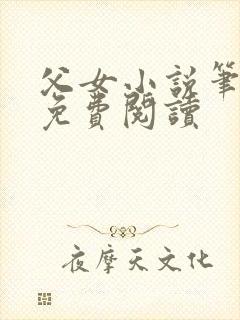 父女小说筆
免費閱讀
夜摩天文化